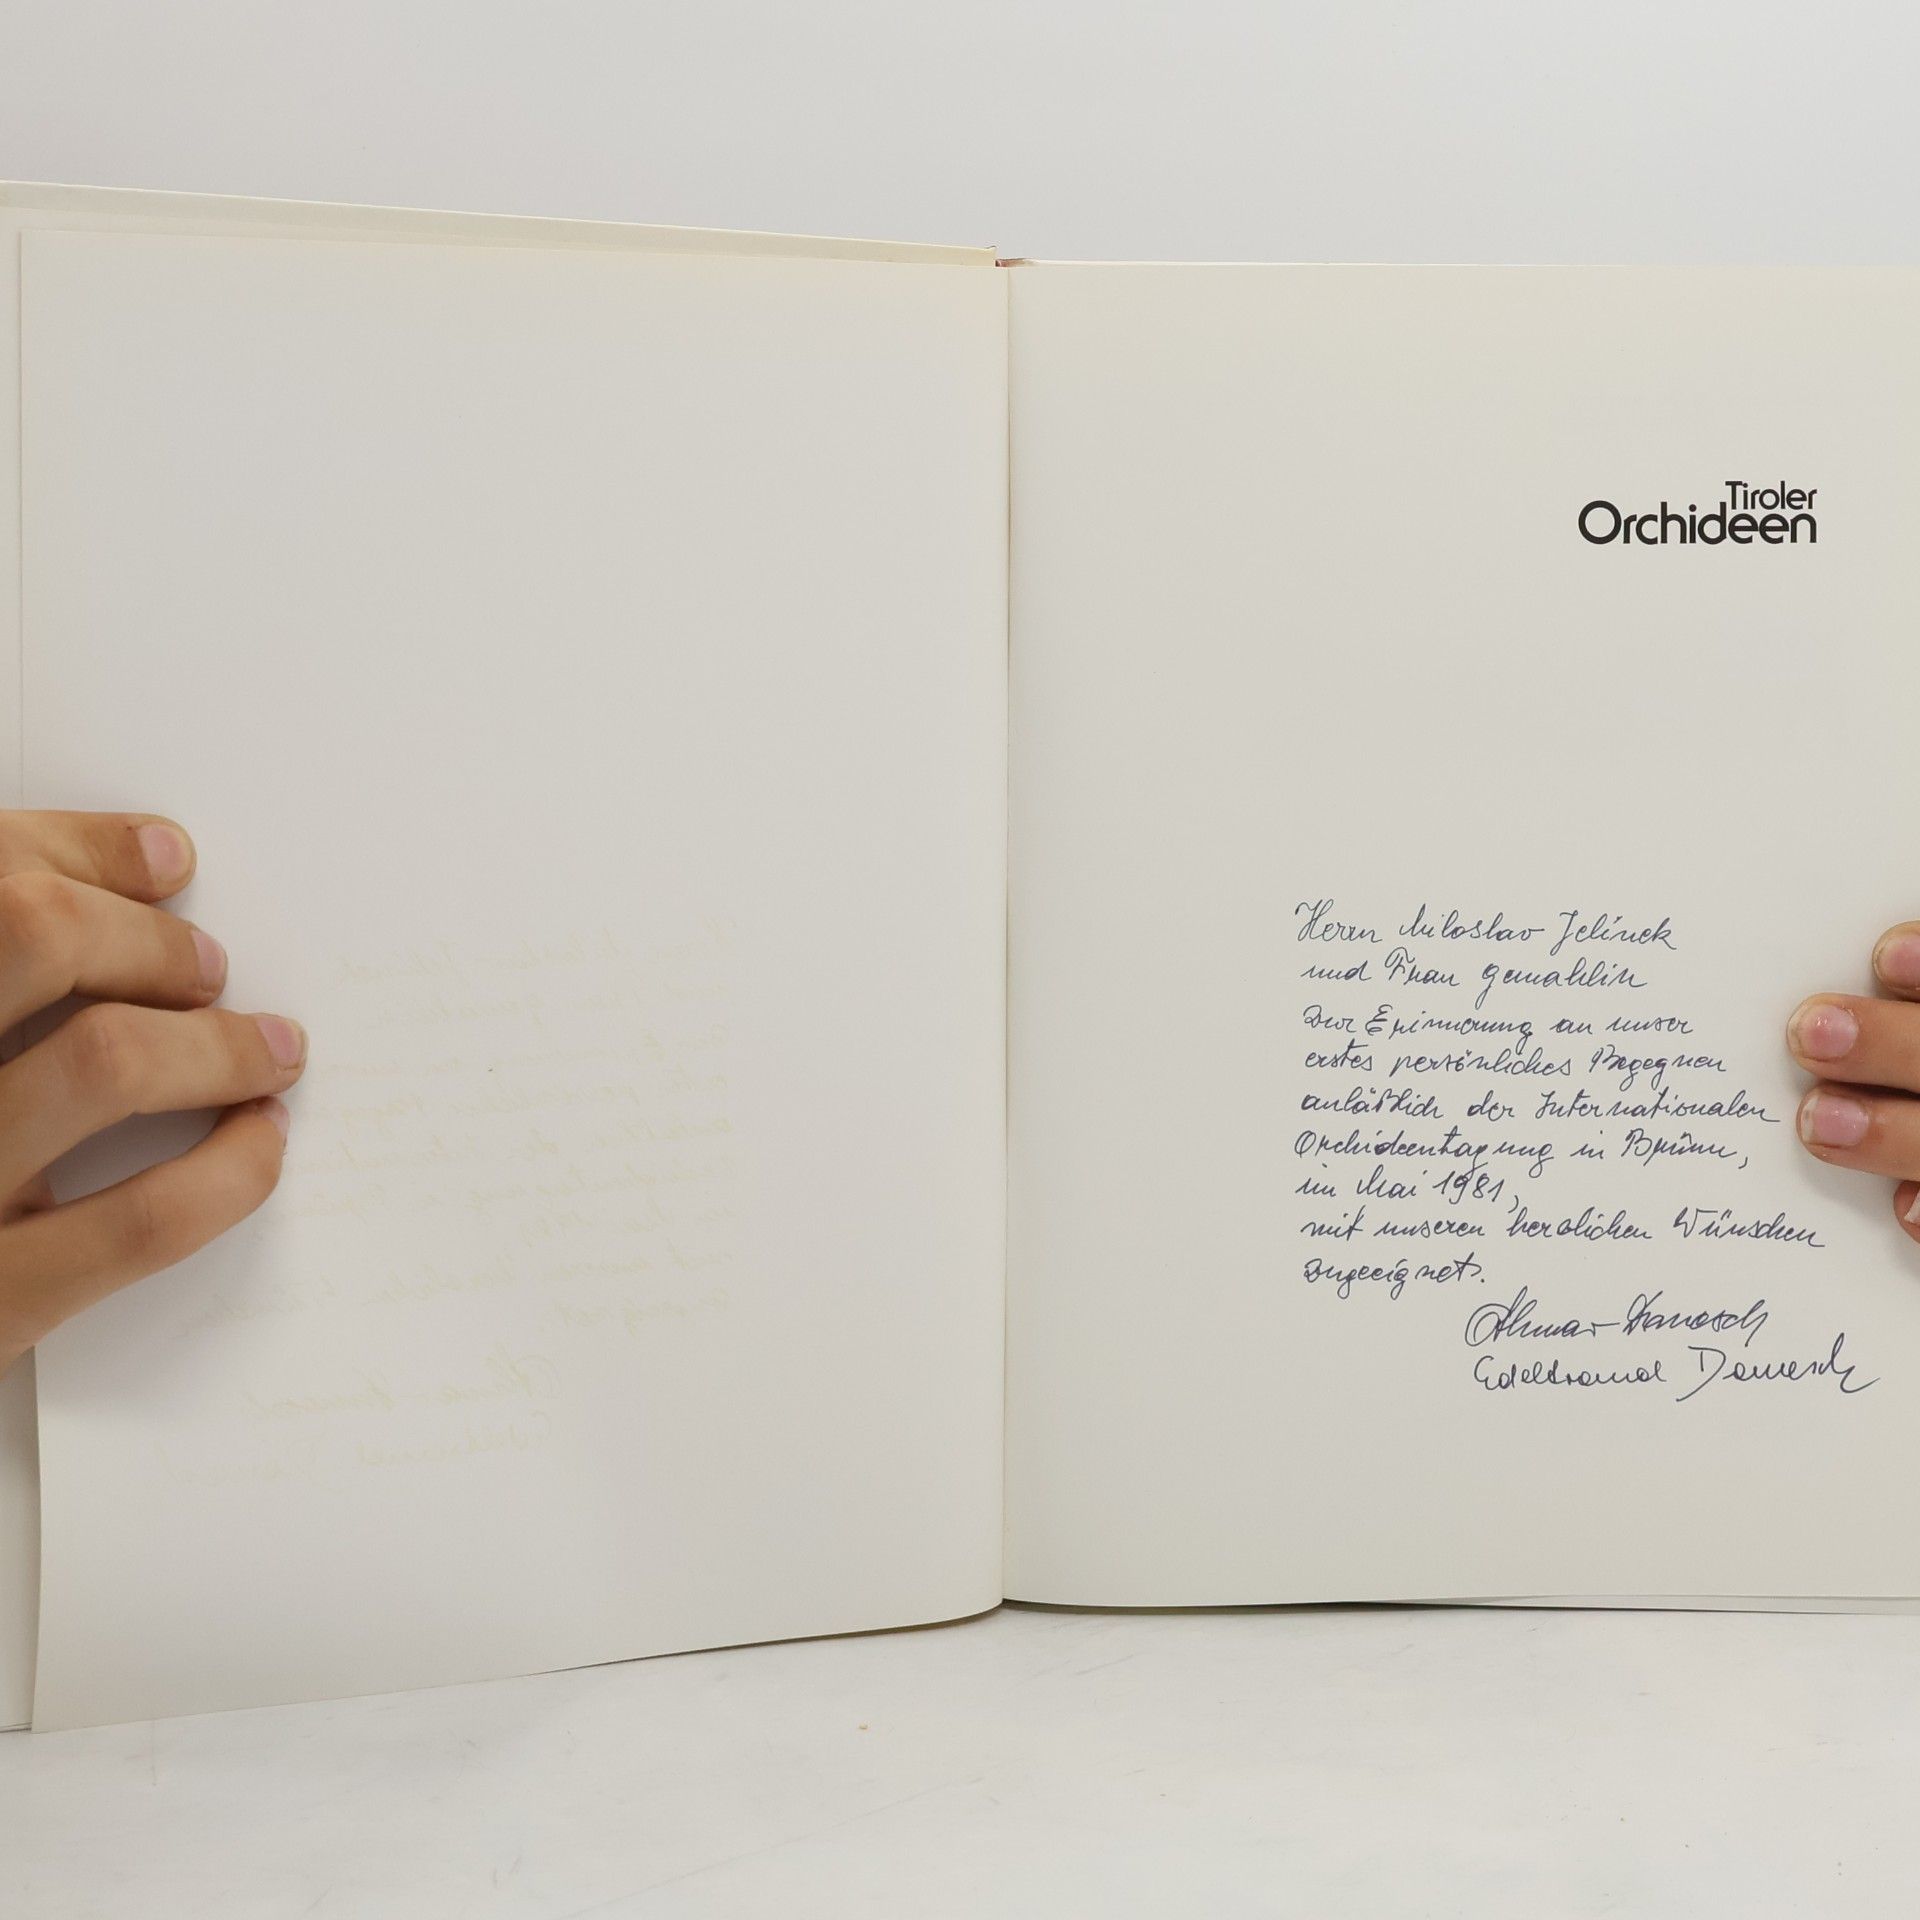 Tiroler
Orchideen
Herrn Miloslav Jelínek
und Frau Gemahlin
Zur Erinnerung an unser
erstes persönliches Begegnen
anläßlich der Internationalen
Orchideentagung in Brünn,
im Mai 1981,
mit unseren herzlichen Wünschen
zugeeignet.
Othmar Danesch
Edeltraud Danesch